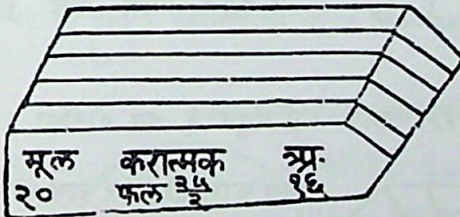 मूल करात्मक त्र्प्र.
२० फल ३५/२ १६